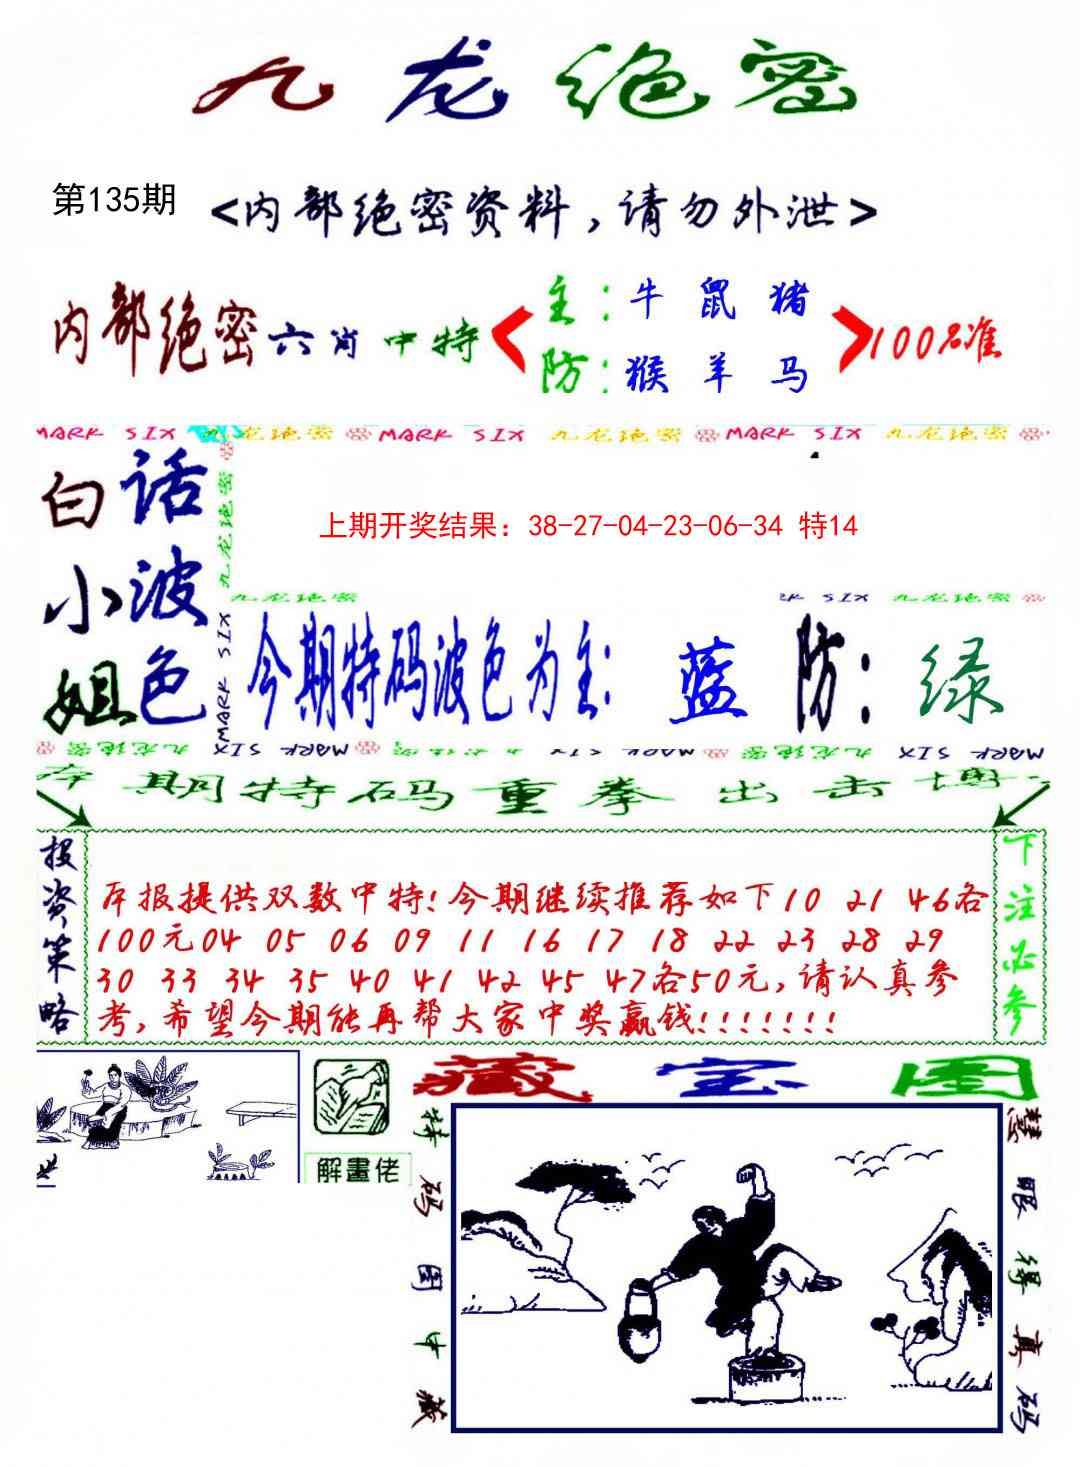 九龙绝密
第135期 <内部绝密资料，请勿外泄>
内部绝密六肖中特
主：牛 鼠 猪
防：猴 羊 马
100%准
MARK SIX 九龙绝密 MARK SIX 九龙绝密 MARK SIX 九龙绝密
白话
小波
姐色
九龙绝密
MARK SIX
上期开奖结果：38-27-04-23-06-34 特14
九龙绝密
SIX 九龙绝密
今期特码波色为主：蓝 防：绿
九龙绝密 MARK SIX 九龙绝密 MARK SIX 九龙绝密 MARK SIX
本期特码重拳出击博
投资策略
本报提供双数中特！今期继续推荐如下10 21 46各
100元04 05 06 09 11 16 17 18 22 23 28 29
30 33 34 35 40 41 42 45 47各50元，请认真参
考，希望今期能再帮大家中奖赢钱！！！！！！！
下注必参
解畫佬
藏宝图
特码图中藏
慧眼得真码